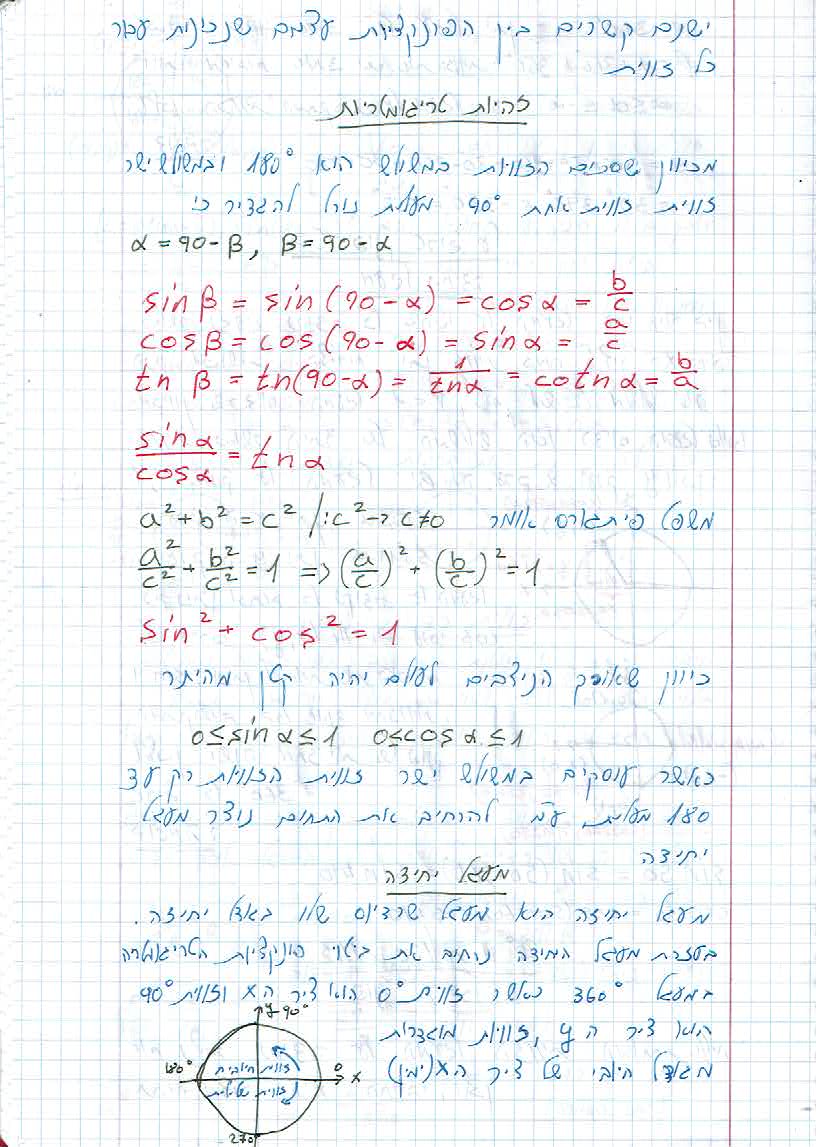 ישנם קשרים בין הפונקציות עצמם שנכונות עבור
כל זווית
זהויות טריגומטריות
מכיוון שסכום הזוויות במשולש הוא 180° ובמשולש ישר
זווית זווית אחת 90° מעלות נוכל להגדיר כי
α = 90 - β , β = 90 - α
sin β = sin (90 - α) = cos α = b/c
cos β = cos (90 - α) = sin α = a/c
tn β = tn(90 - α) = 1/tnα = cotn α = b/a
sin α/cos α = tn α
משפט פיתגורס אומר a² + b² = c² /:c² → c≠0
a²/c² + b²/c² = 1 => (a/c)² + (b/c)² = 1
sin² + cos² = 1
כיוון שאורך הניצבים לעולם יהיה קטן מהיתר
0 ≤ sin α ≤ 1 0 ≤ cos α ≤ 1
כאשר עוסקים במשולש ישר זווית הזוויות רק עד
180 מעלות ע"מ להרחיב את התחום נוצר מעגל
יחידה
מעגל יחידה
מעגל יחידה הוא מעגל שרדיוס שלו באורך יחידה.
בעזרת מעגל היחידה את ביטוי הטריגומטריה
במעגל 360° כאשר זווית 0° הוא ציר הx וזווית 90°
הוא ציר ה y, זוויות מוגדרות
חיובי של ציר הx (ימין)
y 90°
180° 0 x
זוויות חיוביות
זוויות שליליות
270°